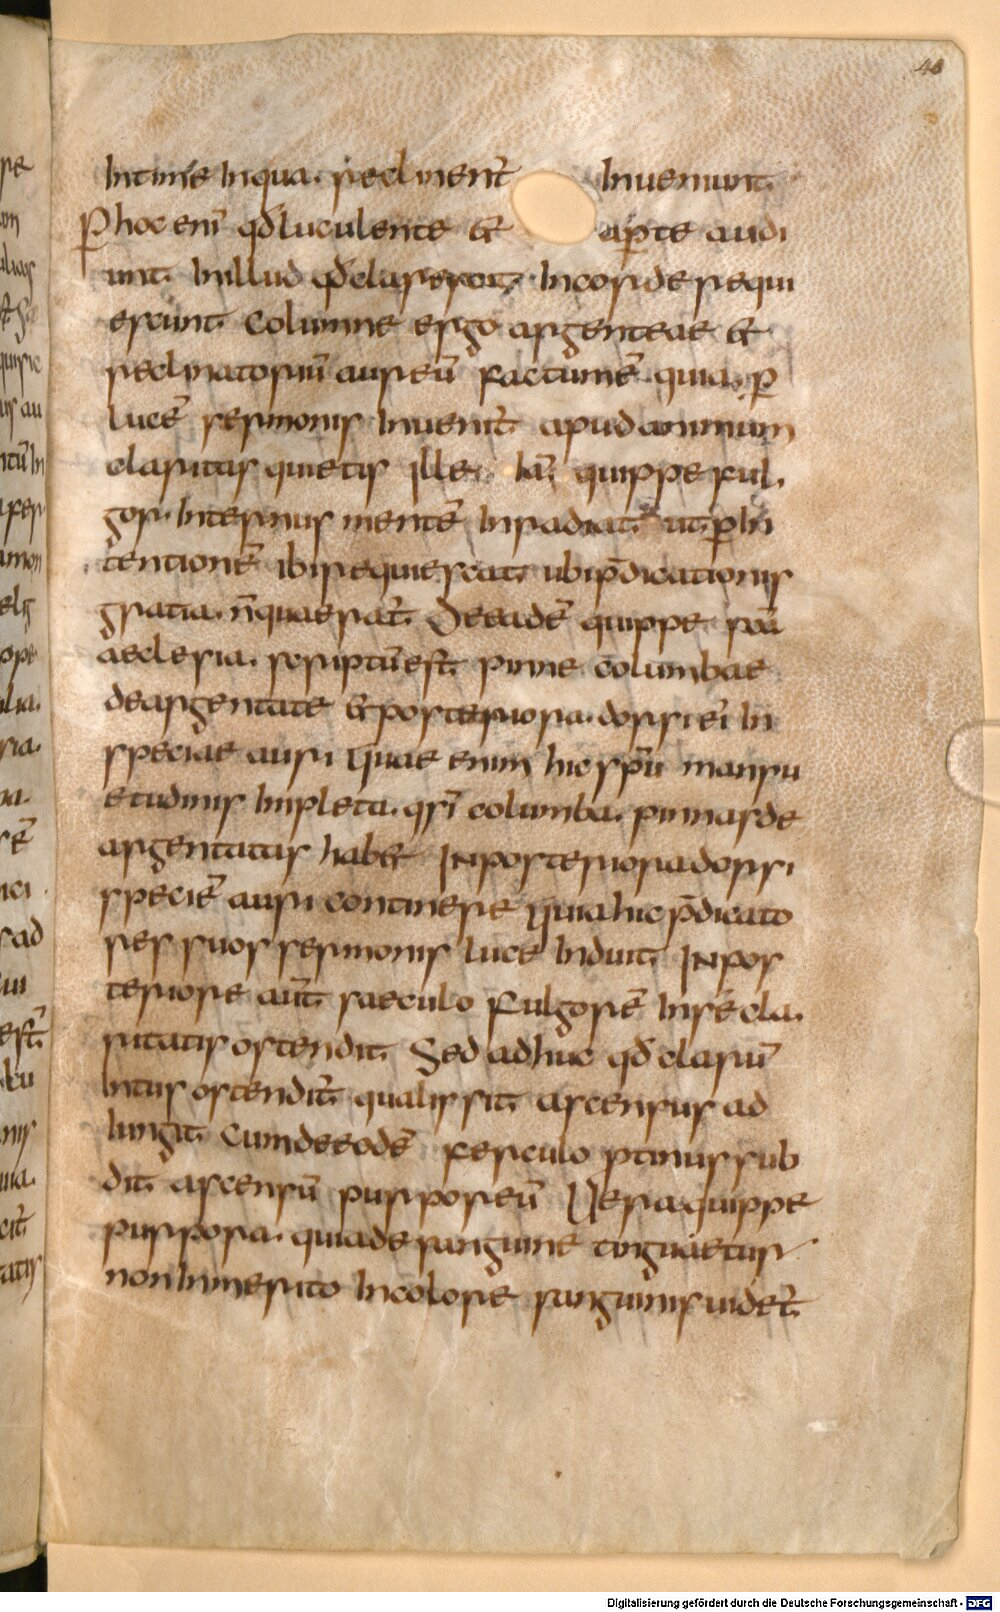 46
intime inqua reclinent̄ inueniunt
P hoc enī qđ luculente et ap̲te audi
unt. In illud qđ clarescit. Incor de requi
escunt. Columne ergo argenteae et
reclinatoriū aureū factum ē. quia p̲
lucē sermonis inuenit̄ apud animum
claritas quietis. Ille. Iā quippe ful
gor. Internus mentē inradiat. ut p̲ in
tentionē ibi requiescat. ubi p̄dicationis
gratia. n̄ quaerat̄. De eadē quippe scā
aeclesia. scriptū est. pinne columbae
deargentate et posteriora. dorsi eī in
speciae auri Quae enim hic sp̄u mansu
etudinis impleta. qsī columba. pinnas de
argentatas habet In posteriora dorsi
speciē auri continere Quia hic p̄dicato
res suos sermonis luce induit. In pos
teriore aūt. saeculo fulgorē in se cla
ritatis ostendit. Sed adhuc qđ clarū
intus ostendit̄ qualis sit. ascensus ad
iungit. Cum de eodē ferculo p̲tinus sub
dit. ascensū purporeū Uera quippe
purpora. quia de sanguine tinguaetur
non inmerito in colore sanguinis uidet̄.
Digitalisierung gefördert durch die Deutsche Forschungsgemeinschaft - DFG